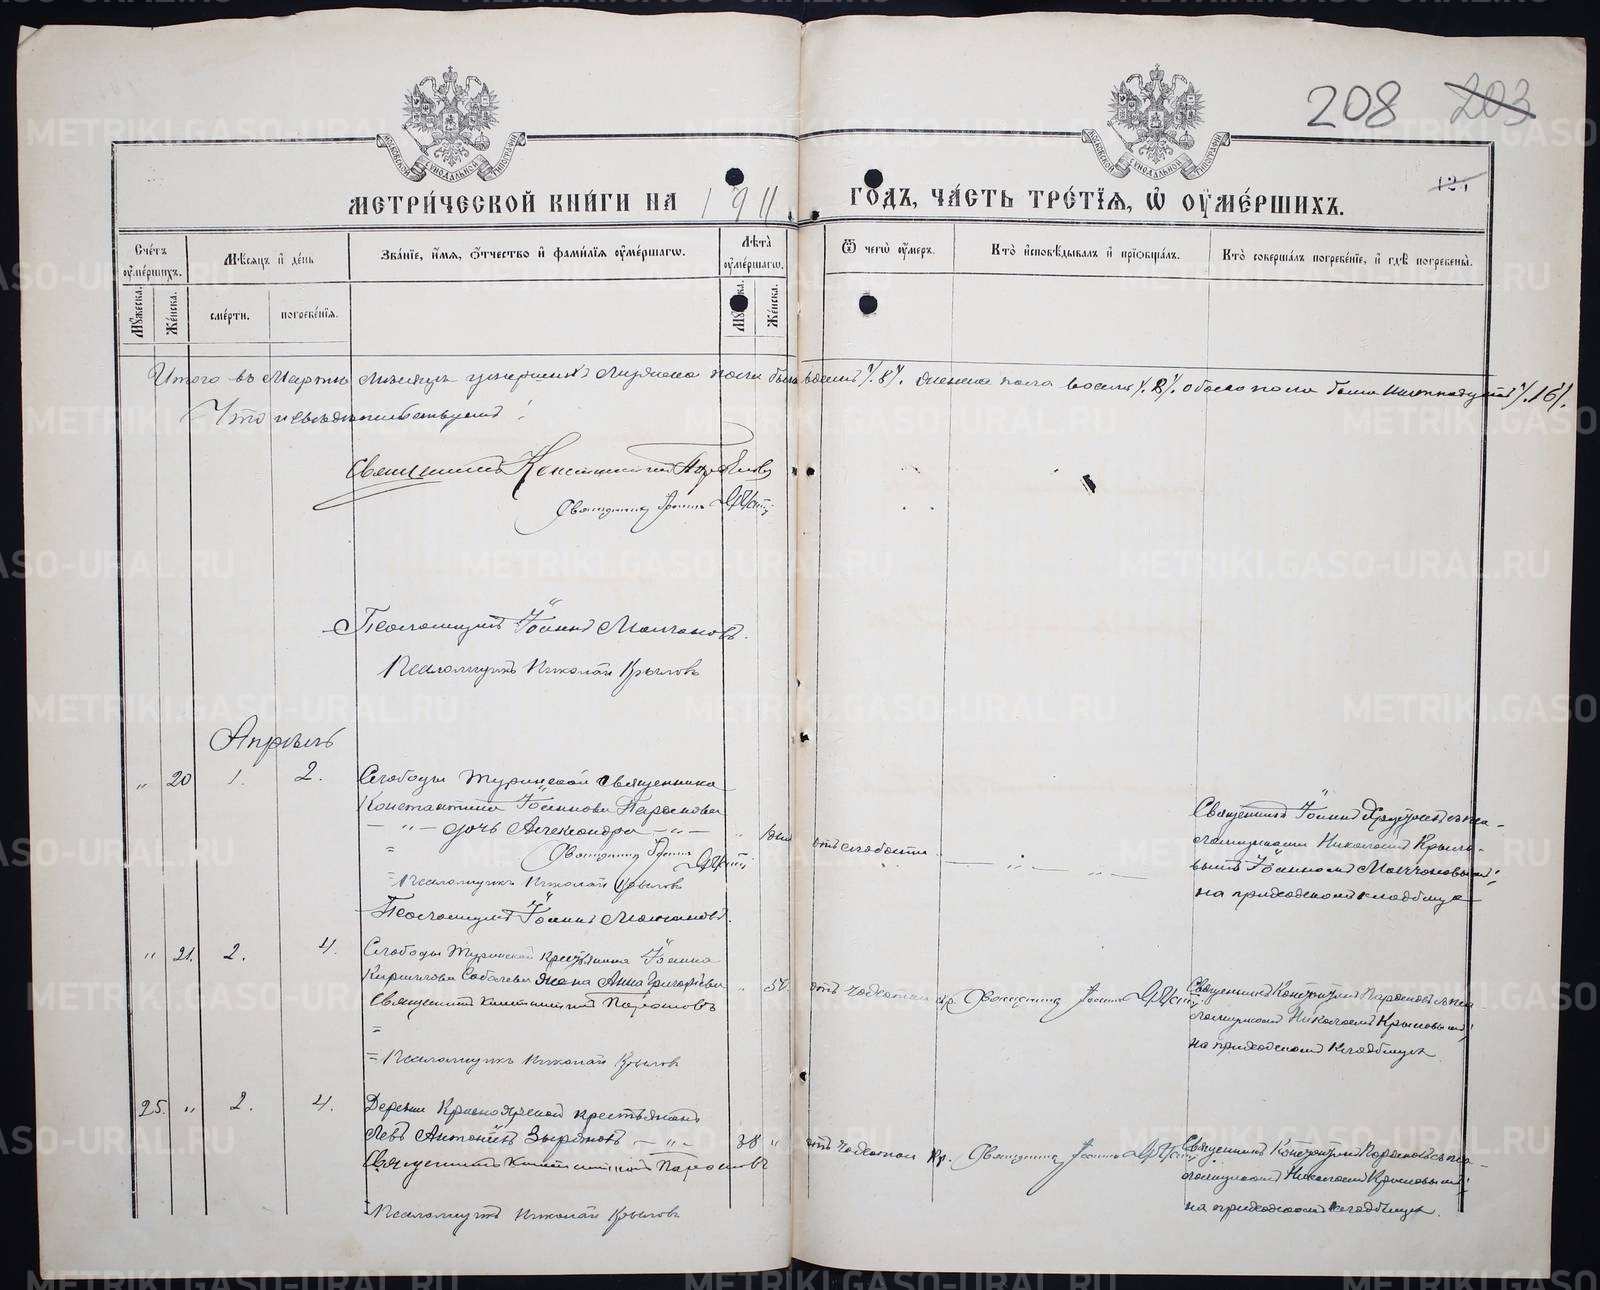 208 203
121
МЕТРИ́ЧЕСКОЙ КНИ́ГИ НА 1911 ГО́ДЪ, ЧА́СТЬ ТРЕ́ТЇѦ, Ѡ ОУМЕ́РШИХЪ.
Сче́тъ оуме́ршихъ.
Мꙋ́жеска.
Же́нска.
Мѣ́сяцъ и де́нь
сме́рти.
погребе́нїѧ.
Зва́нїе, и́мѧ, ѻ́тчество и фами́лїѧ оуме́ршагѡ.
Лѣ́та оуме́ршагѡ.
Же́нска.
Ѿ чегѡ̀ оу́меръ.
Кто̀ и҆сповѣ́дывалъ и҆ прїѡбща́лъ.
Кто̀ соверша́лъ погребе́нїе, и҆ гдѣ̀ погребены̀.
Итого въ Мартѣ мѣсяцѣ умершихъ мужеска пола было восемь /.8/. женска пола восемь /.8/. обоего пола было шестнадцать /.16/.
Что и свидѣтельствуемъ:
Священникъ Константинъ
Священникъ Іоаннъ
Псаломщикъ Іоаннъ Молчановъ.
Псаломщикъ Николай Крыловъ
Апрѣль
" 20 1. 2. Слободы Туринской священника
Константина Іоаннова
— " — дочь Александра — " — " отъ слабости — " — " —
Священникъ Іоаннъ
= Псаломщикъ Николай Крыловъ
Псаломщикъ Іоаннъ Молчановъ.
Священникъ Іоаннъ съ пса-
ломщиками Николаемъ Крыло-
вымъ Іоанномъ Молчановымъ;
на приходскомъ кладбищѣ
" 21. 2. 4. Слободы Туринской крестьянина Іоанна
Кириллова жена Анна Григорьева " отъ чахотки
Священникъ Константинъ
=
= Псаломщикъ Николай Крыловъ
Священникъ Іоаннъ
Священникъ Константинъ съ пса-
ломщикомъ Николаемъ Крыловымъ;
на приходскомъ кладбищѣ
25. " 2. 4. Деревни Красноярской крестьянинъ
Левъ Антоніевъ Зыряновъ — " — 38 " отъ чахотки
Священникъ Константинъ
= Псаломщикъ Николай Крыловъ
Священникъ Іоаннъ
Священникъ Константинъ съ пса-
ломщикомъ Николаемъ Крыловымъ;
на приходскомъ кладбищѣ.
METRIKI.GASO-URAL.RU